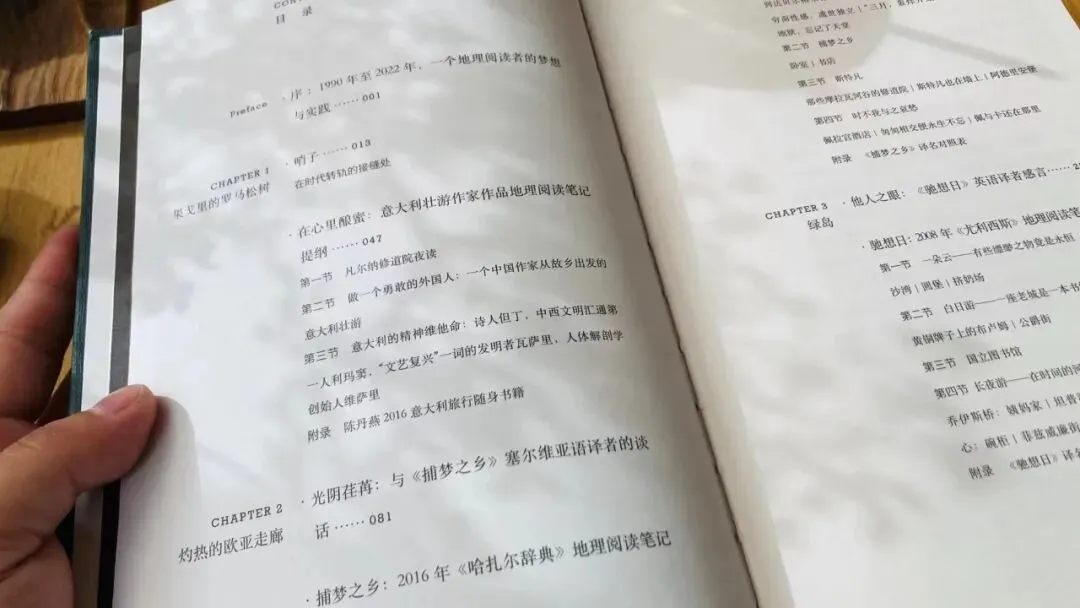 目 录
Preface
· 序：1990 年至 2022 年，一个地理阅读者的梦想
与实践 …… 001
CHAPTER 1
果戈里的罗马松树
· 哨子 …… 013
在时代转轨的接缝处
· 在心里酿蜜：意大利壮游作家作品地理阅读笔记
提纲 …… 047
第一节 凡尔纳修道院夜读
第二节 做一个勇敢的外国人：一个中国作家从故乡出发的
意大利壮游
第三节 意大利的精神维他命：诗人但丁，中西文明汇通第
一人利玛窦，“文艺复兴”一词的发明者瓦萨里，人体解剖学
创始人维萨里
附录 陈丹燕 2016 意大利旅行随身书籍
CHAPTER 2
灼热的欧亚走廊
· 光阴荏苒：与《捕梦之乡》塞尔维亚语译者的谈
话 …… 081
· 捕梦之乡：2016 年《哈扎尔辞典》地理阅读笔记
穷而性感，遗世独立｜“三月，
地狱，忘记了天堂
第二节 捕梦之乡
卧室｜书店
第三节 斯特凡
那些摩拉瓦河谷的修道院｜斯特凡也在墙上｜阿德里安堡
第四节 时不我与之哀愁
佩拉宫酒店｜匆匆相交便永生不忘｜佩与卡还在那里
附录 《捕梦之乡》译名对照表
CHAPTER 3
绿岛
· 他人之眼：《驰想日》英语译者感言 ……
· 驰想日：2008 年《尤利西斯》地理阅读笔
第一节 一朵云——有些缥缈之物竟是永恒
沙湾｜圆堡｜挤奶场
第二节 白日游——一座老城是一本书
黄铜牌子上的布卢姆｜公爵街
第三节 国立图书馆
第四节 长夜游——在时间的河
乔伊斯桥：姨妈家｜坦普
心：碗柜｜菲兹威廉街
附录 《驰想日》译名